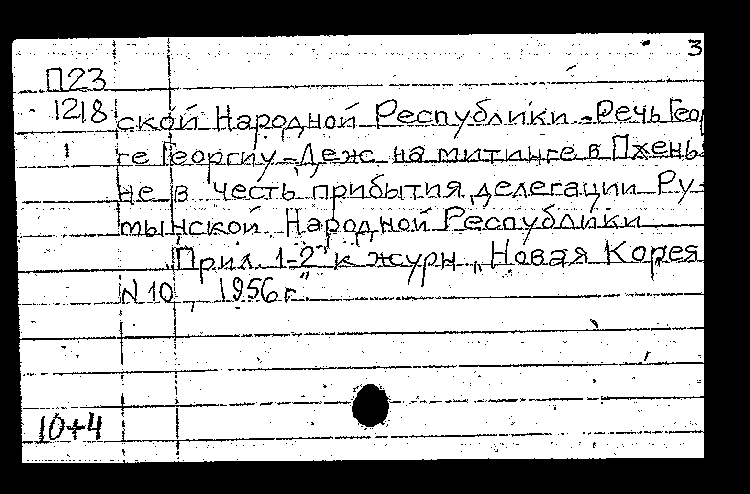 3
П23
1218 ской Народной Республики. Речь Геор
1 ге Георгиу-Деж на митинге в Пхень-
не в честь прибытия делегации Ру-
мынской Народной Республики
Прил. 1-2 к журн „Новая Корея
N 10, 1956 г."
10+4